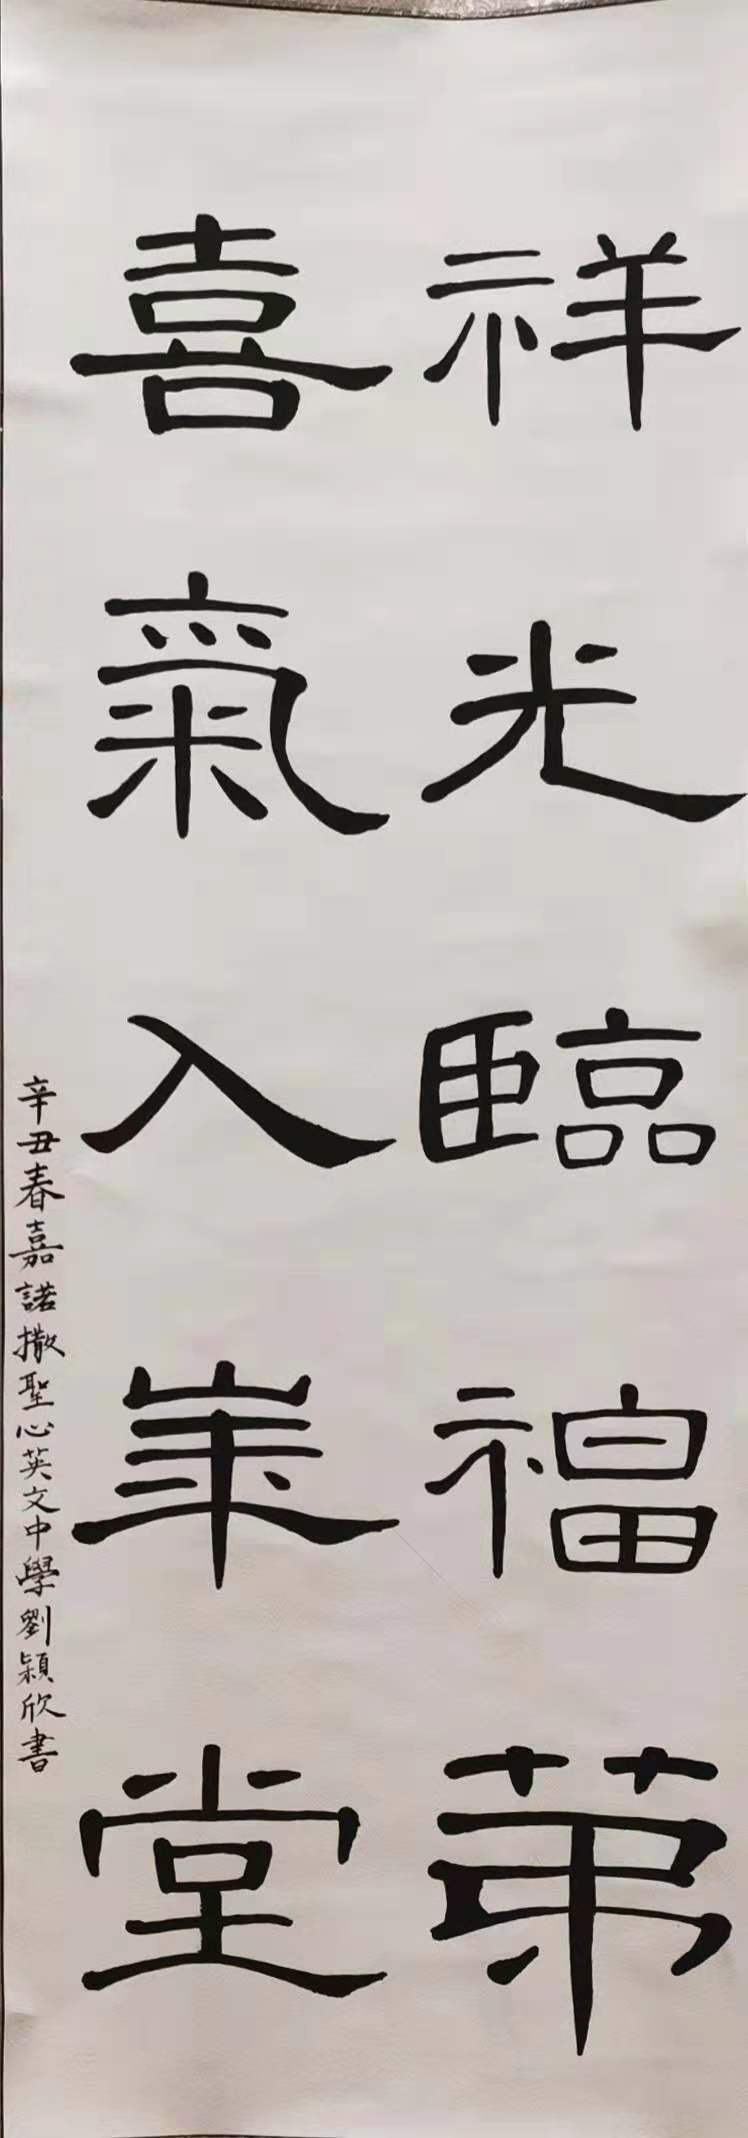 祥光臨福苐
喜氣入崋堂
辛丑春嘉諾撒聖心英文中學劉穎欣書